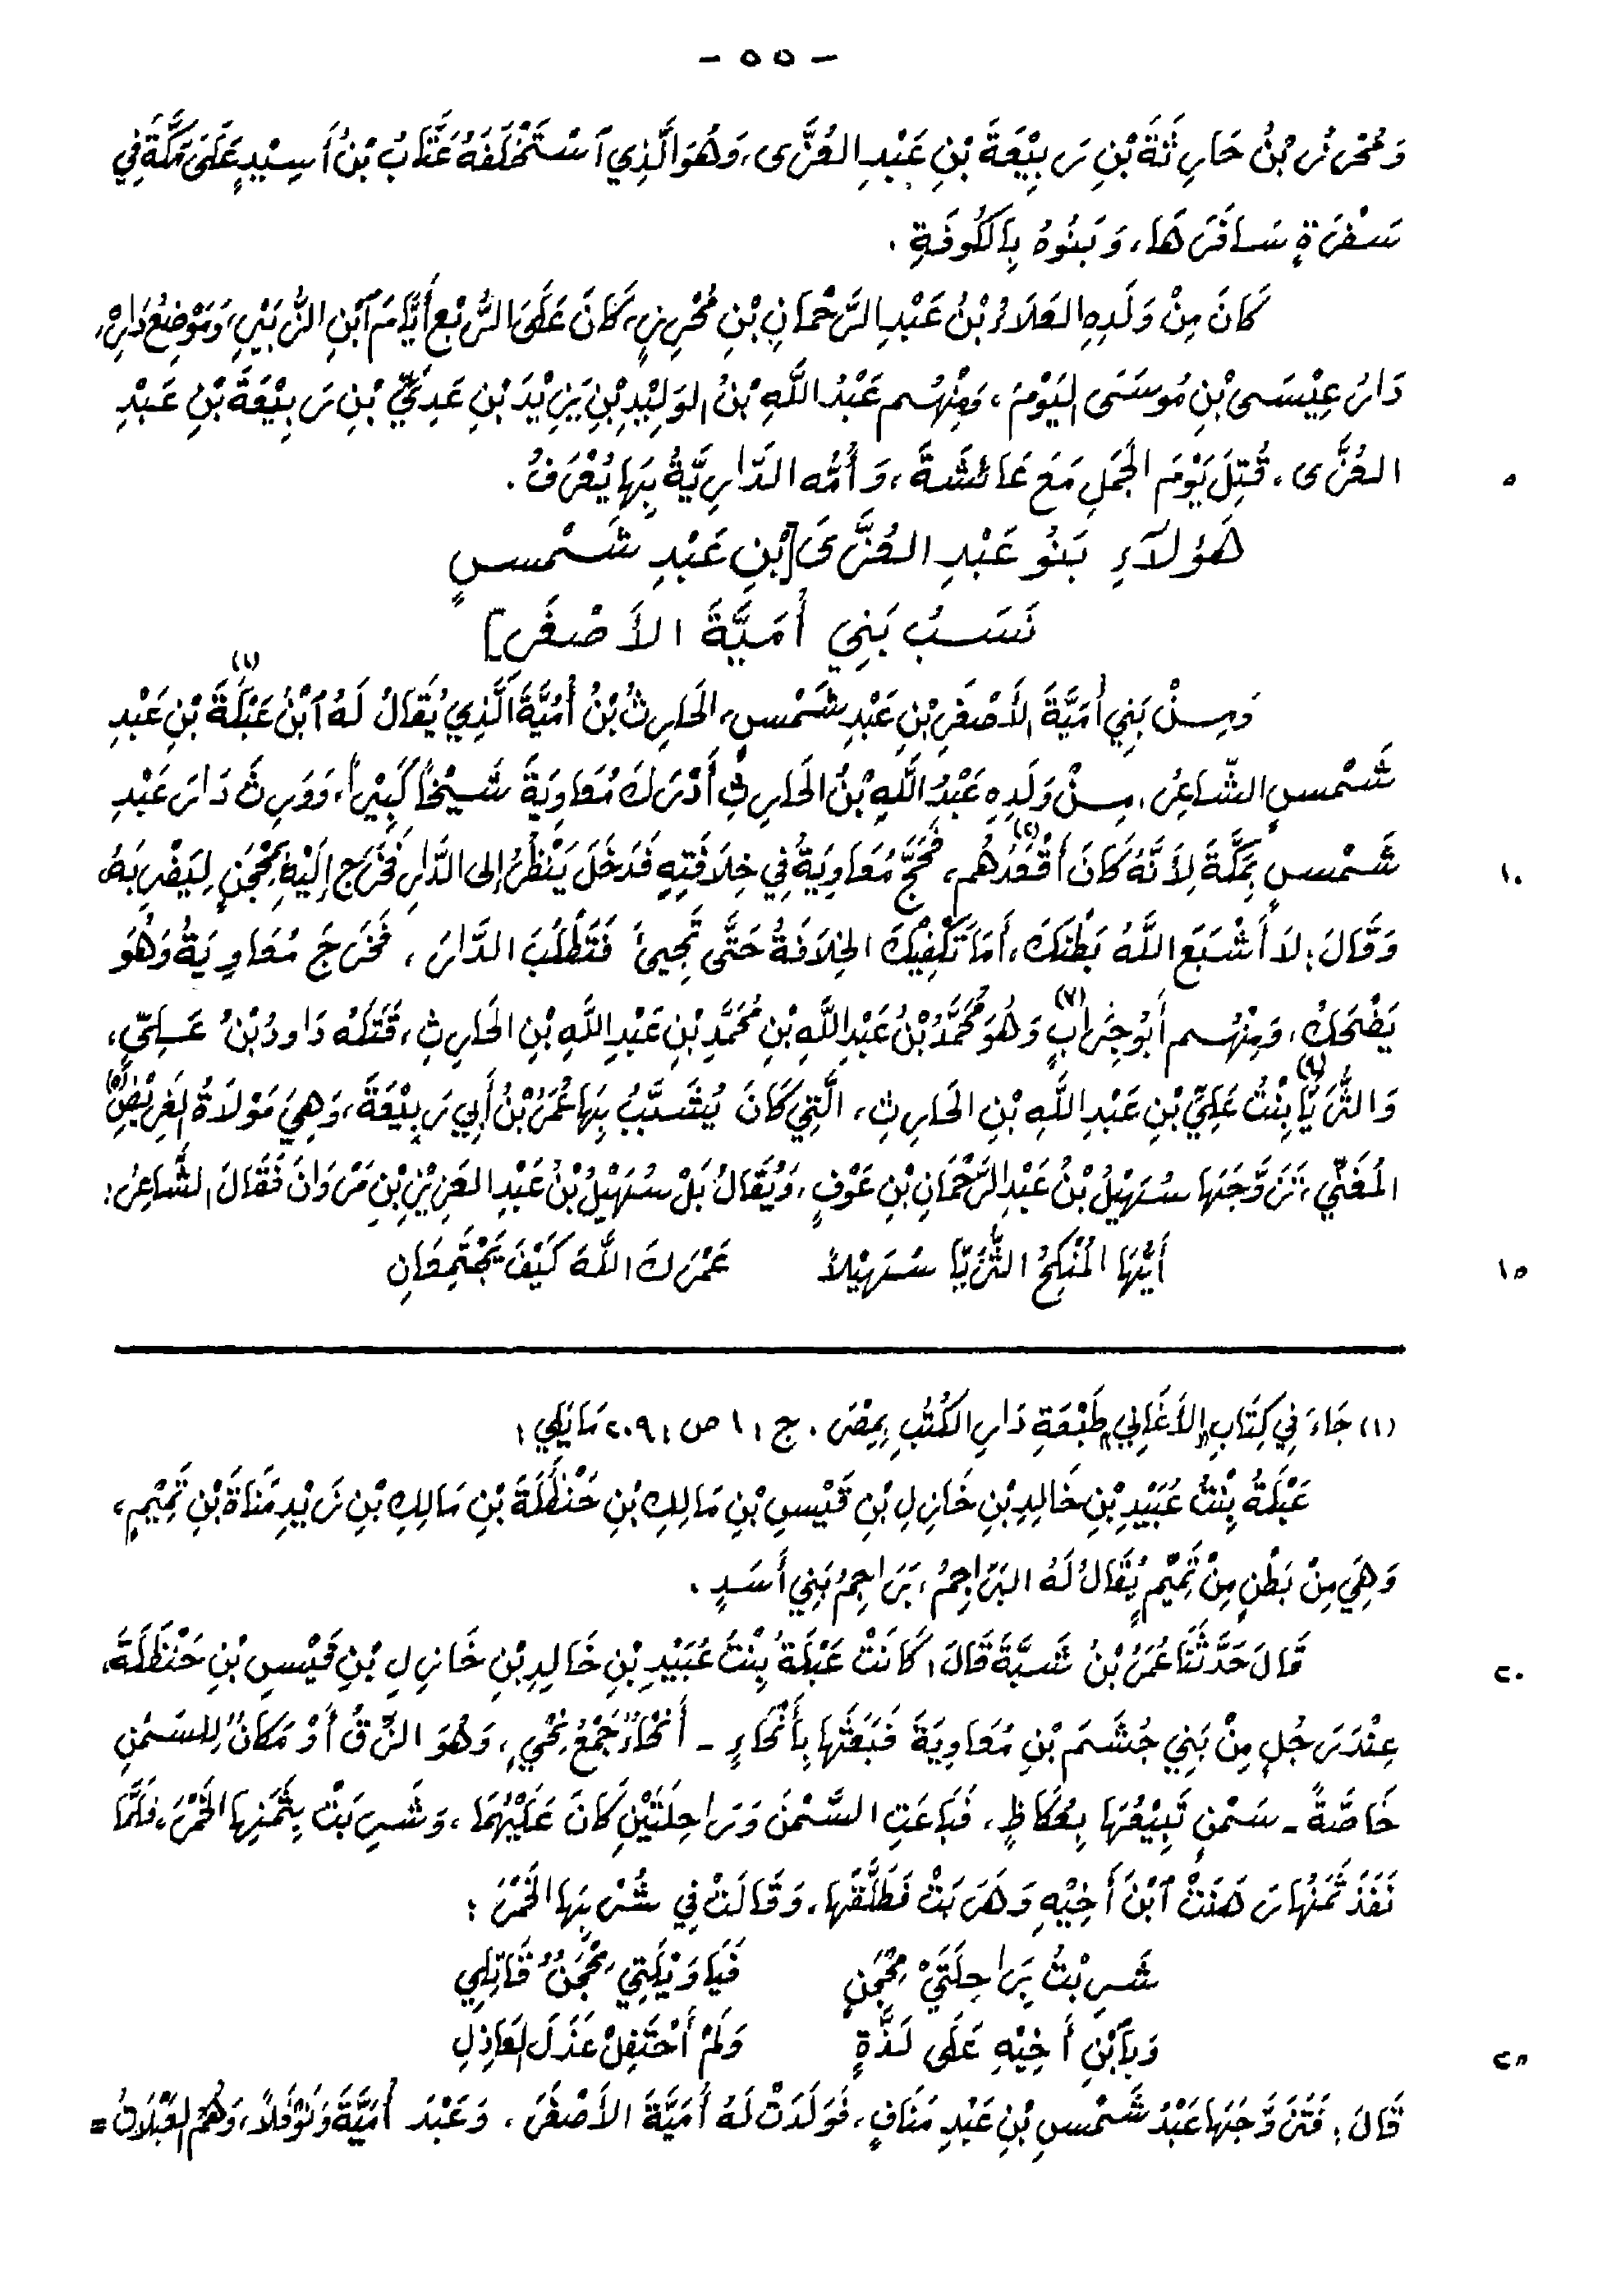 - ٥٥ -
وَمُحْرِزُ بْنُ حَارِثَةَ بْنِ رَبِيْعَةَ بْنِ عَبْدِ العُزَّى، وَهُوَ الَّذِي ٱسْتَخْلَفَهُ عَتَّابُ بْنُ أَسِيْدٍ عَلَى مَكَّةَ فِي
سَفْرَةٍ سَافَرَهَا، وَبَنُوهُ بِالكُوفَةِ.
كَانَ مِنْ وَلَدِهِ العَلاَءُ بْنُ عَبْدِ الرَّحْمَانِ بْنِ مُحْرِزٍ، كَانَ عَلَى الرُّبْعِ أَيَّامَ ٱبْنِ الزُّبَيْرِ، وَمَوْضِعُ دَارِهِ،
دَارُ عِيْسَى بْنِ مُوسَى اليَوْمَ، وَمِنْهُم عَبْدُ اللَّهِ بْنُ الوَلِيْدِ بْنِ يَزِيْدَ بْنِ عَدِيِّ بْنِ رَبِيْعَةَ بْنِ عَبْدِ
العُزَّى، قُتِلَ يَوْمَ الجَمَلِ مَعَ عَائشَةَ، وَأُمُّه الدَّارِيَّةُ بِهَا يُعْرَفُ. ٥
هَؤُلآءِ بَنُو عَبْدِ العُزَّى [بْنِ عَبْدِ شَمْسٍ
نَسَبُ بَنِي أُمَيَّةَ الأَصْغَرِ]
وَمِنْ بَنِي أُمَيَّةَ الأَصْغَرِ بْنِ عَبْدِ شَمْسٍ، الحَارِثُ بْنُ أُمَيَّةَ الَّذِي يُقَالُ لَهُ ٱبْنُ عَبْلَةَ (١) بْنِ عَبْدِ
شَمْسٍ الشَّاعِرُ، مِنْ وَلَدِهِ عَبْدُ اللَّهِ بْنُ الحَارِثِ أَدْرَكَ مُعَاوِيَةَ شَيْخاً كَبِيْراً، وَوَرِثَ دَارَ عَبْدِ
شَمْسٍ بِمَكَّةَ لِأَنَّهُ كَانَ أَقْعَدَهُم (٢)، فَحَجَّ مُعَاوِيَةُ فِي خِلاَفَتِهِ فَدَخَلَ يَنْظُرُ إلى الدَّارِ فَخَرَجَ إِلَيْهِ بِمِحْجَنٍ لِيَضْرِبَهُ، ١٠
وَقَالَ: لاَ أَشْبَعَ اللَّهُ بَطْنَكَ، أَمَا تَكْفِيْكَ الخِلاَفَةُ حَتَّى تَجِيئَ فَتَطْلُبَ الدَّارَ، فَخَرَجَ مُعَاوِيَةُ وَهُوَ
يَضْحَكُ، وَمِنْهُم أَبُو جِرَابٍ (٣) وَهُوَ مُحَمَّدُ بْنُ عَبْدِ اللَّهِ بْنِ مُحَمَّدِ بْنِ عَبْدِ اللَّهِ بْنِ الحَارِثِ، قَتَلَهُ دَاودُ بْنُ عَلِيٍّ،
وَالثُّرَيَّا (٤) بِنْتُ عَلِيِّ بْنِ عَبْدِ اللَّهِ بْنِ الحَارِثِ، الَّتِي كَانَ يُشَبِّبُ بِهَا عُمَرُ بْنُ أَبِي رَبِيْعَةَ، وَهِيَ مَوْلاَةُ الغَرِيْضِ (٥)
المُغَنِّي، تَزَوَّجَهَا سُهَيْلُ بْنُ عَبْدِ الرَّحْمَانِ بْنِ عَوْفٍ، وَيُقَالُ بَلْ سُهَيْلُ بْنُ عَبْدِ العَزِيْزِ بْنِ مَرْوَانَ فَقَالَ الشَّاعِرُ:
أَيُّهَا المُنْكِحُ الثُّرَيَّا سُهَيْلاً    عَمْرَكَ اللَّهَ كَيْفَ يَجْتَمِعَانِ ١٥
(١) جَاءَ فِي كِتَابِ «الأَغَانِي» طَبْعَةِ دَارِ الكُتُبِ بِمِصْرَ. ج ١١ ص ٢٠٩ مَا يَلِي:
عَبْلَةُ بِنْتُ عُبَيْدِ بْنِ خَالِدِ بْنِ خَازِلِ بْنِ قَيْسِ بْنِ مَالِكِ بْنِ حَنْظَلَةَ بْنِ مَالِكِ بْنِ زَيْدِ مَنَاةَ بْنِ تَمِيْمٍ،
وَهِيَ مِنْ بَطْنٍ مِنْ تَمِيْمٍ يُقَالُ لَهُ البَرَاجِمُ، بَرَاجِمُ بَنِي أَسَدٍ.
قَالَ حَدَّثَنَا عُمَرُ بْنُ شَبَّةَ قَالَ: كَانَتْ عَبْلَةُ بِنْتُ عُبَيْدِ بْنِ خَالِدِ بْنِ خَازِلِ بْنِ قَيْسِ بْنِ حَنْظَلَةَ، ٢٠
عِنْدَ رَجُلٍ مِنْ بَنِي جُشَمَ بْنِ مُعَاوِيَةَ فَبَعَثَهَا بِأَنْحَاءٍ - أَنْحَاءٌ جَمْعُ نِحْيٍ، وَهُوَ الزِّقُّ أَوْ مَكَانٌ لِلسَمْنِ
خَاصَّةً - سَمْنٍ تَبِيْعُهَا بِعُكَاظٍ، فَبَاعَتِ السَّمْنَ وَرَاحِلَتَيْنِ كَانَ عَلَيْهِمَا، وَشَرِبَتْ بِثَمَنِهَا الخَمْرَ، فَلَمَّا
نَفَذَ ثَمَنُهَا رَهَنَتْ ٱبْنَ أَخِيْهِ وَهَرَبَتْ فَطَلَّقَهَا، وَقَالَتْ فِي شُرْبِهَا الخَمْرَ:
شَرِبْتُ بِرَاحِلَتَيْ مِحْجَنٍ    فَيَا وَيْلَتِي مِحْجَنٌ قَاتِلِي
وَبِٱبْنِ أَخِيْهِ عَلَى لَذَّةٍ    وَلَمْ أَحْتَفِلْ عَذَلَ العَاذِلِ ٢٥
قَالَ: فَتَزَوَّجَهَا عَبْدُ شَمْسِ بْنِ عَبْدِ مَنَافٍ، فَوَلَدَتْ لَهُ أُمَيَّةَ الأَصْغَرَ، وَعَبْدَ أُمَيَّةَ وَنَوْفَلاً، وَهُمُ العَبَلاَتُ =